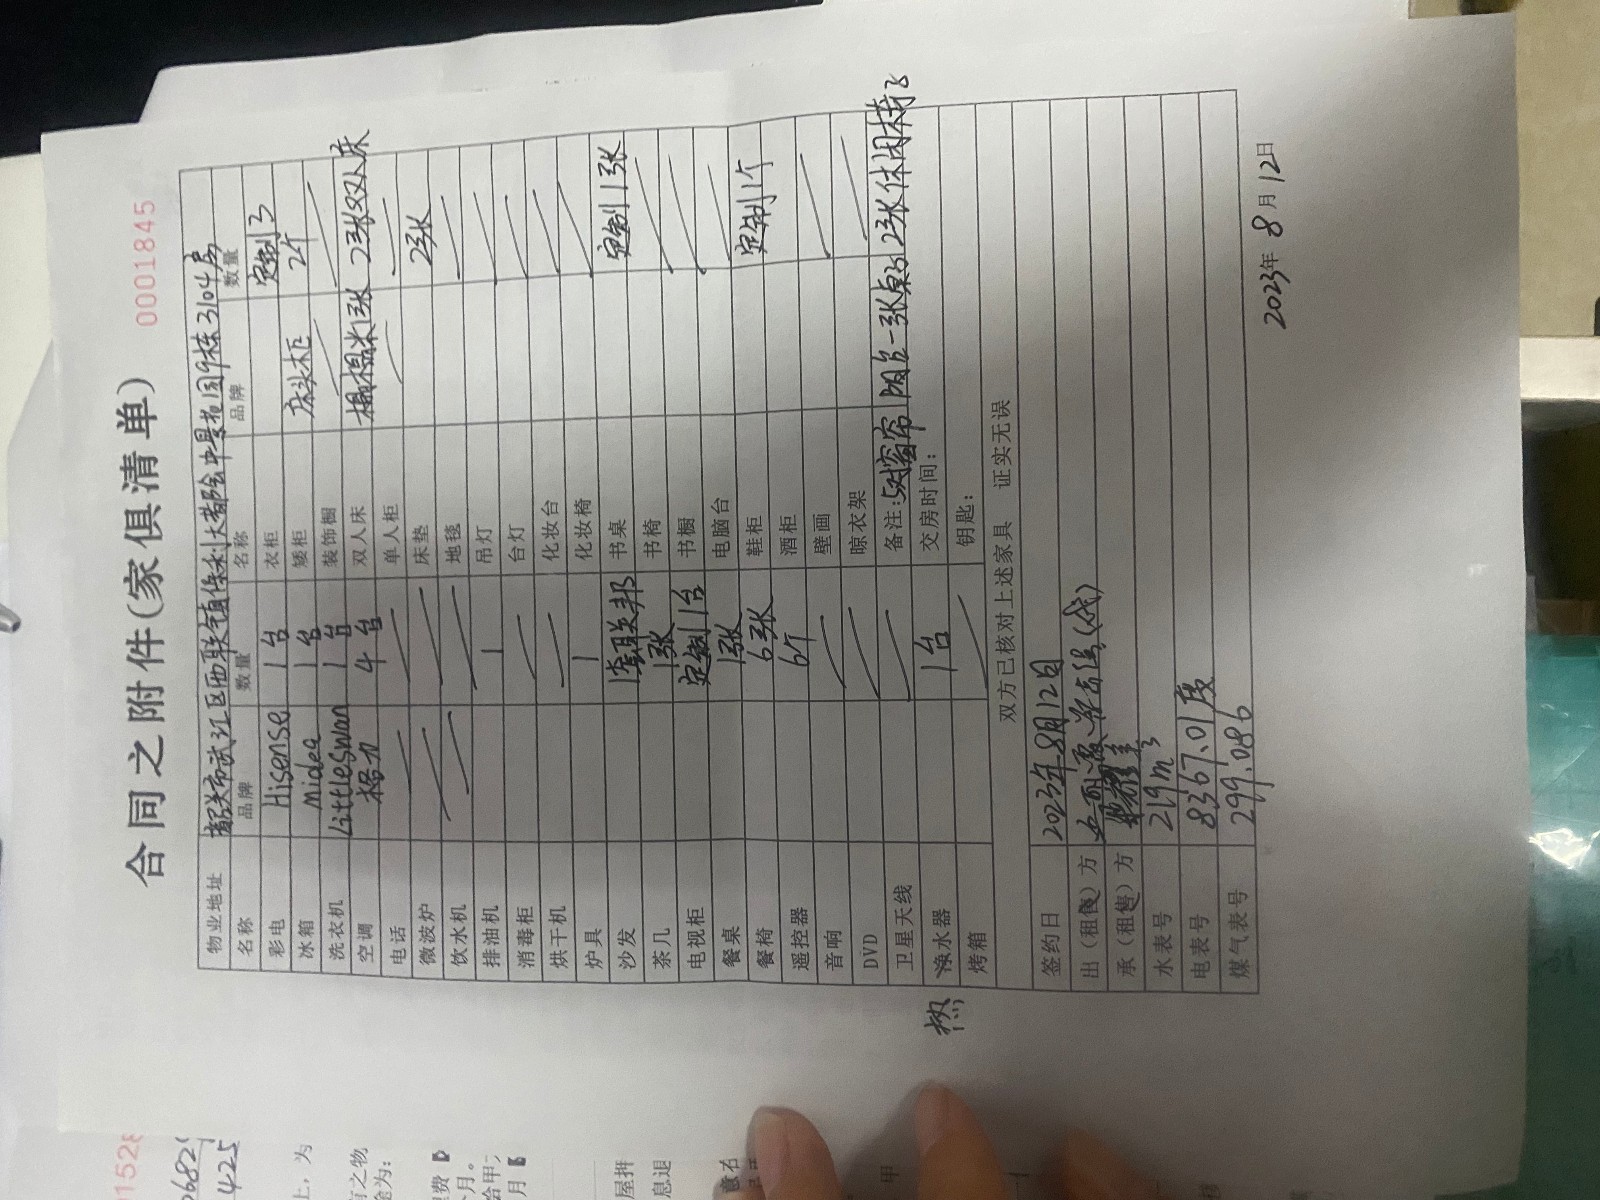 合同之附件(家俱清单)
0001845
物业地址 韶关市武江区西联镇保利大都会中景花园9栋3104房
名称 品牌 数量 名称 品牌 数量
彩电 Hisense 1台 衣柜 定制3
冰箱 midea 1台 矮柜 床头柜 2个
洗衣机 Littleswan 1台 装饰橱
空调 格力 4台 双人床 榻榻米1张 2张双人床
电话 单人柜
微波炉 床垫 2张
饮水机 地毯
排油机 1 吊灯
消毒柜 台灯
烘干机 化妆台
炉具 1 化妆椅
沙发 1套联邦 书桌 定制1张
茶几 1张 书椅
电视柜 定制1台 书橱
餐桌 1张 电脑台
餐椅 6张 鞋柜 定制1个
遥控器 6个 酒柜
音响 壁画
DVD 晾衣架
卫星天线 备注:5对窗帘 阳台一张桌子2张休闲椅子
热水器 1台 交房时间:
烤箱 钥匙:
双方已核对上述家具 证实无误
签约日 2023年8月12日
出(租售)方 (代)
承(租售)方
水表号 219m³
电表号 8367.01度
煤气表号 299.086
2023年8月12日
01528
425
上,为
有之物
金为:
月。
给甲;
屋押
息退
意右
甲